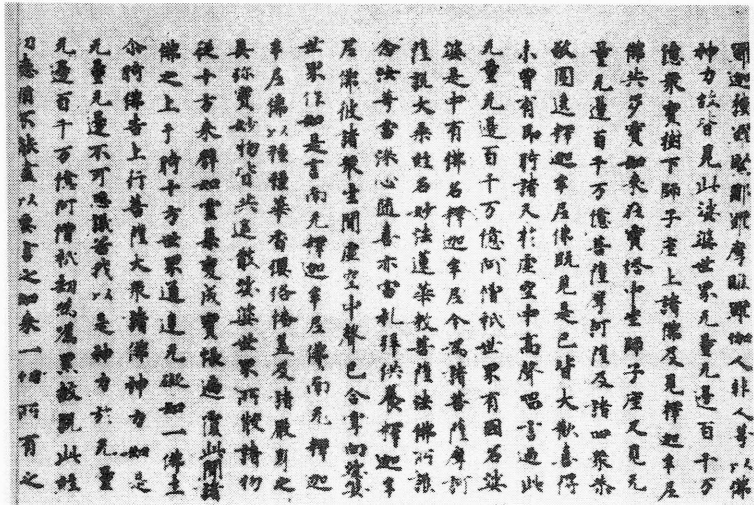 羅迦樓羅緊那羅摩睺羅伽人非人等以佛
神力故皆見此娑婆世界无量无邊百千万
億衆寶樹下師子座上諸佛及見釋迦牟尼
佛共多寶如來在寶塔中坐師子座又見无
量无邊百千万億菩薩摩訶薩及諸四衆恭
敬圍遶釋迦牟尼佛既見是已皆大歡喜得
未曾有即時諸天於虛空中高聲唱言過此
无量无邊百千万億阿僧祇世界有國名娑
婆是中有佛名釋迦牟尼今爲諸菩薩摩訶
薩說大乘經名妙法蓮華教菩薩法佛所護
念汝等當深心隨喜亦當礼拜供養釋迦牟
尼佛彼諸衆生聞虛空中聲已合掌向娑婆
世界作如是言南无釋迦牟尼佛南无釋迦
牟尼佛以種種華香瓔珞幡蓋及諸嚴身之
具珍寶妙物皆共遙散娑婆世界所散諸物
從十方來譬如雲集變成寶帳遍覆此間諸
佛之上于時十方世界通達无礙如一佛土
尒時佛告上行菩薩大衆諸佛神力如是
无量无邊不可思議若我以是神力於无量
无邊百千万億阿僧祇劫爲囑累故說此經
功德猶不能盡以要言之如來一切所有之